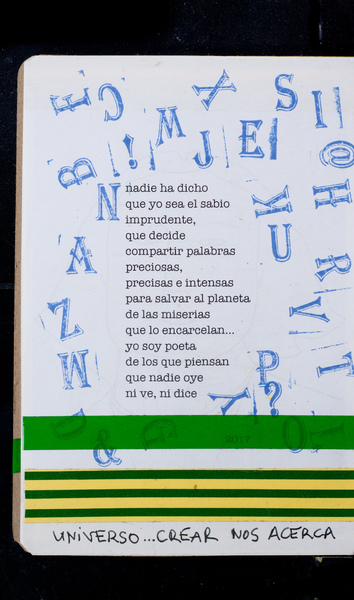 nadie ha dicho
que yo sea el sabio
imprudente,
que decide
compartir palabras
preciosas,
precisas e intensas
para salvar al planeta
de las miserias
que lo encarcelan...
yo soy poeta
de los que piensan
que nadie oye
ni ve, ni dice
2017
UNIVERSO...CREAR NOS ACERCA